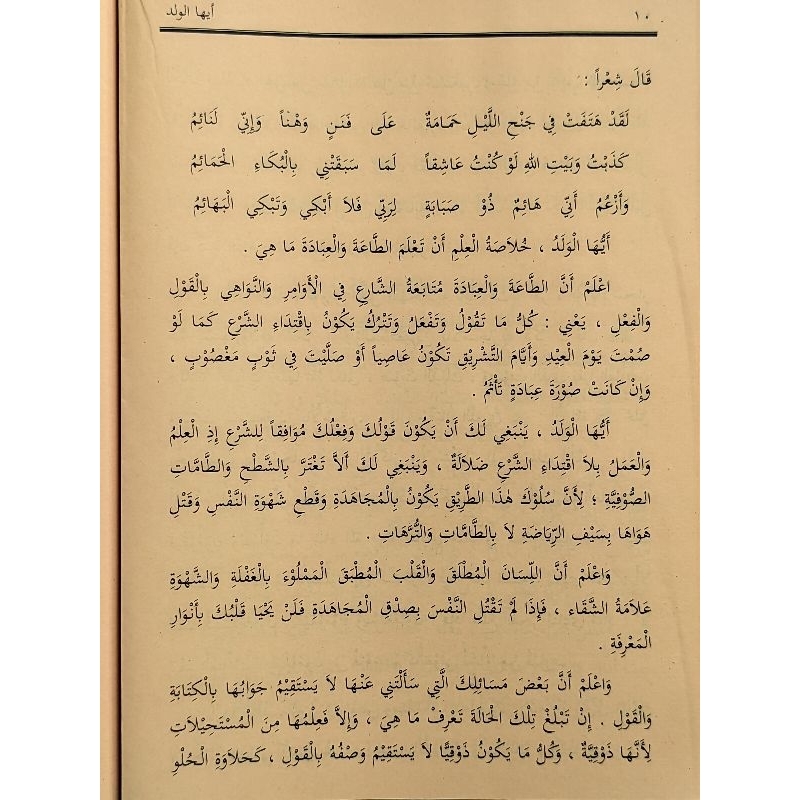 ١٠ أيها الولد
قَالَ شِعْراً :
لَقَدْ هَتَفَتْ فِي جَنْحِ اللَّيْلِ حَمَامَةٌ عَلَى فَنَنٍ وَهْناً وَإِنِّي لَنَائِمُ
كَذَبْتُ وَبَيْتِ اللهِ لَوْ كُنْتُ عَاشِقاً لَمَا سَبَقَتْنِي بِالْبُكَاءِ الْحَمَائِمُ
وَأَزْعُمُ أَنِّي هَائِمٌ ذُوْ صَبَابَةٍ لِرَبِّي فَلاَ أَبْكِي وَتَبْكِي الْبَهَائِمُ
أَيُّهَا الْوَلَدُ ، خُلاَصَةُ الْعِلْمِ أَنْ تَعْلَمَ الطَّاعَةَ وَالْعِبَادَةَ مَا هِيَ .
اعْلَمْ أَنَّ الطَّاعَةَ وَالْعِبَادَةَ مُتَابَعَةُ الشَّارِعِ فِي الْأَوَامِرِ وَالنَّوَاهِي بِالْقَوْلِ
وَالْفِعْلِ ، يَعْنِي : كُلُّ مَا تَقُوْلُ وَتَفْعَلُ وَتَتْرُكُ يَكُوْنُ بِاقْتِدَاءِ الشَّرْعِ كَمَا لَوْ
صُمْتَ يَوْمَ الْعِيْدِ وَأَيَّامَ التَّشْرِيْقِ تَكُوْنُ عَاصِياً أَوْ صَلَّيْتَ فِي ثَوْبٍ مَغْصُوْبٍ ،
وَإِنْ كَانَتْ صُوْرَةَ عِبَادَةٍ تَأْثَمُ .
أَيُّهَا الْوَلَدُ ، يَنْبَغِي لَكَ أَنْ يَكُوْنَ قَوْلُكَ وَفِعْلُكَ مُوَافِقاً لِلشَّرْعِ إِذِ الْعِلْمُ
وَالْعَمَلُ بِلاَ اقْتِدَاءِ الشَّرْعِ ضَلاَلَةٌ ، وَيَنْبَغِي لَكَ أَلاَّ تَغْتَرَّ بِالشَّطْحِ وَالطَّامَّاتِ
الصُّوْفِيَّةِ ؛ لِأَنَّ سُلُوْكَ هٰذَا الطَّرِيْقِ يَكُوْنُ بِالْمُجَاهَدَةِ وَقَطْعِ شَهْوَةِ النَّفْسِ وَقَتْلِ
هَوَاهَا بِسَيْفِ الرِّيَاضَةِ لاَ بِالطَّامَّاتِ وَالتُّرَّهَاتِ .
وَاعْلَمْ أَنَّ اللِّسَانَ الْمُطْلَقَ وَالْقَلْبَ الْمُطْبَقَ الْمَمْلُوْءَ بِالْغَفْلَةِ وَالشَّهْوَةِ
عَلاَمَةُ الشَّقَاءِ ، فَإِذَا لَمْ تَقْتُلِ النَّفْسَ بِصِدْقِ الْمُجَاهَدَةِ فَلَنْ يَحْيَا قَلْبُكَ بِأَنْوَارِ
الْمَعْرِفَةِ .
وَاعْلَمْ أَنَّ بَعْضَ مَسَائِلِكَ الَّتِي سَأَلْتَنِي عَنْهَا لاَ يَسْتَقِيْمُ جَوَابُهَا بِالْكِتَابَةِ
وَالْقَوْلِ . إِنْ تَبْلُغْ تِلْكَ الْحَالَةَ تَعْرِفْ مَا هِيَ ، وَإِلاَّ فَعِلْمُهَا مِنَ الْمُسْتَحِيْلاَتِ
لِأَنَّهَا ذَوْقِيَّةٌ ، وَكُلُّ مَا يَكُوْنُ ذَوْقِيًّا لاَ يَسْتَقِيْمُ وَصْفُهُ بِالْقَوْلِ ، كَحَلاَوَةِ الْحُلْوِ